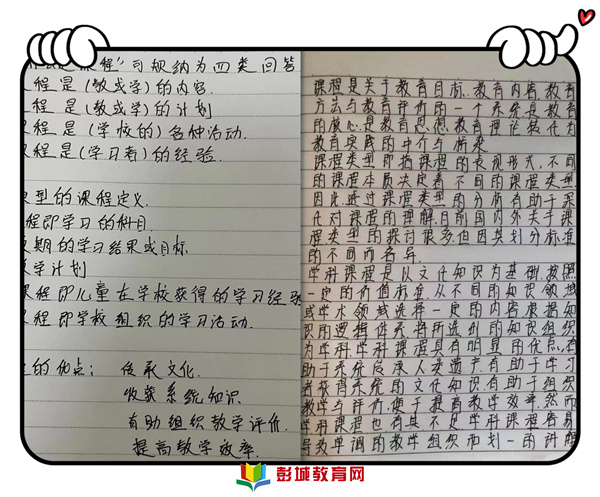 课程"可规纳为四类回答
程是(教或学)的内容.
程是(教或学)的计划
程是(学校的)各种活动.
程是(学习者)的经验.
型的课程定义.
程即学习的科目.
期的学习结果或目标
学计划
课程即儿童在学校获得的学习经验
程即学校组织的学习活动.
的优点: 传承文化.
收获系统知识
有助组织教学评价.
提高教学效率.
课程是关于教育目标、教育内容、教育
方法与教育评价的一个系统是教育
的核心,是教育思想教育理论转化为
教育实践的中介与桥梁
课程类型即指课程的表现形式,不同
的课程本质决定着不同的课程类型.
因此透过课程类型的分析有助于深
化对课程的理解.目前国内外关于课
程类型的探讨很多但因其划分标准
的不同而各异.
学科课程是以文化知识为基础,按照
一定的价值标准,从不同的知识领域
或学术领域选择一定的内容根据知
识的逻辑体系将所选到的知识组织
为学科.学科课程具有明显的优点,有
助于系统传承人类遗产,有助于学习
者获得系统的文化知识,有助于组织
教学与评价,便于提高教学效率.然而
学科课程也有其不足.学科课程容易
导致单调的教学组织而划一的讲解
彭城教育网